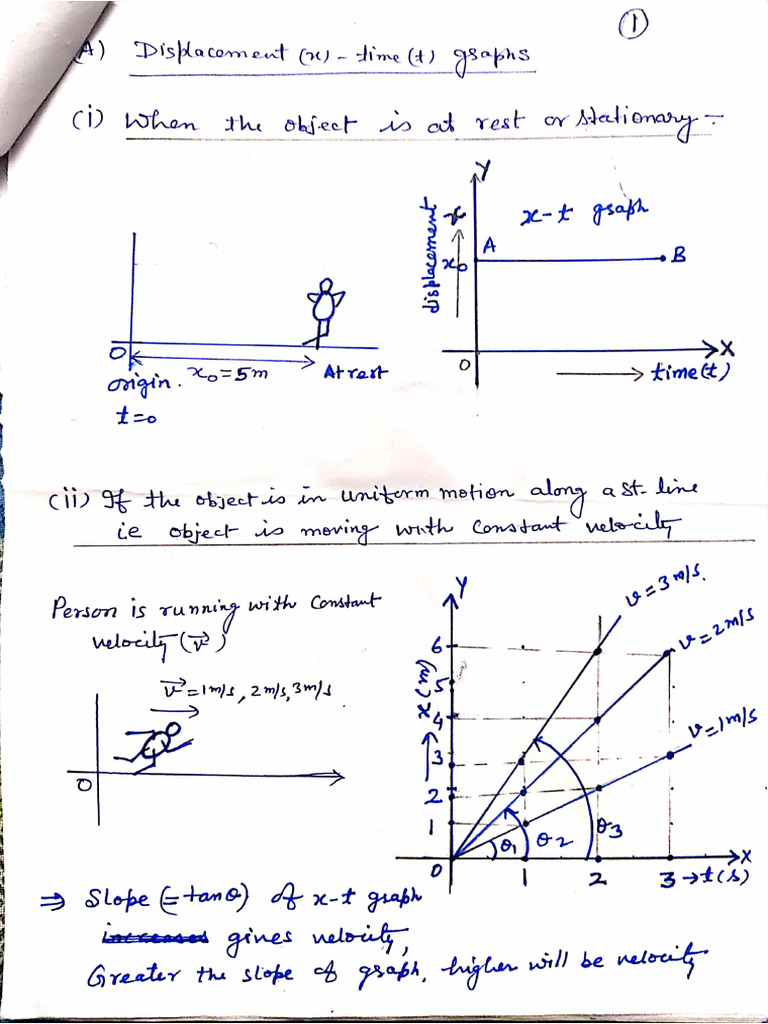 ①
A) Displacement (x) - time (t) graphs
(i) When the object is at rest or stationary -
Y
x-t graph
displacement x
A
x₀
B
O
X
time(t)
O
origin.
t=0
x₀=5m
At rest
(ii) If the object is in uniform motion along a st. line
i.e object is moving with constant velocity
Person is running with constant
velocity (v⃗)
v⃗=1m/s, 2m/s, 3m/s
O
Y
v=3m/s.
v=2m/s
v=1m/s
x(m)
6
5
4
3
2
1
θ₁
θ₂
θ₃
O
1
2
3
X
→t(s)
⇒ Slope (=tanθ) of x-t graph
increases gives velocity,
Greater the slope of graph, higher will be velocity